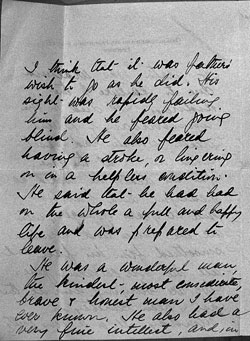 I think that it was father's
wish to go as he did. His
sight was rapidly failing
him and he feared going
blind. He also feared
having a stroke, or lingering
on in a helpless condition.
He said that he had had
on the whole a full and happy
life and was prepared to
leave.
He was a wonderful man,
the kindest, most considerate,
brave & honest man I have
ever known. He also had a
very fine intellect, and in